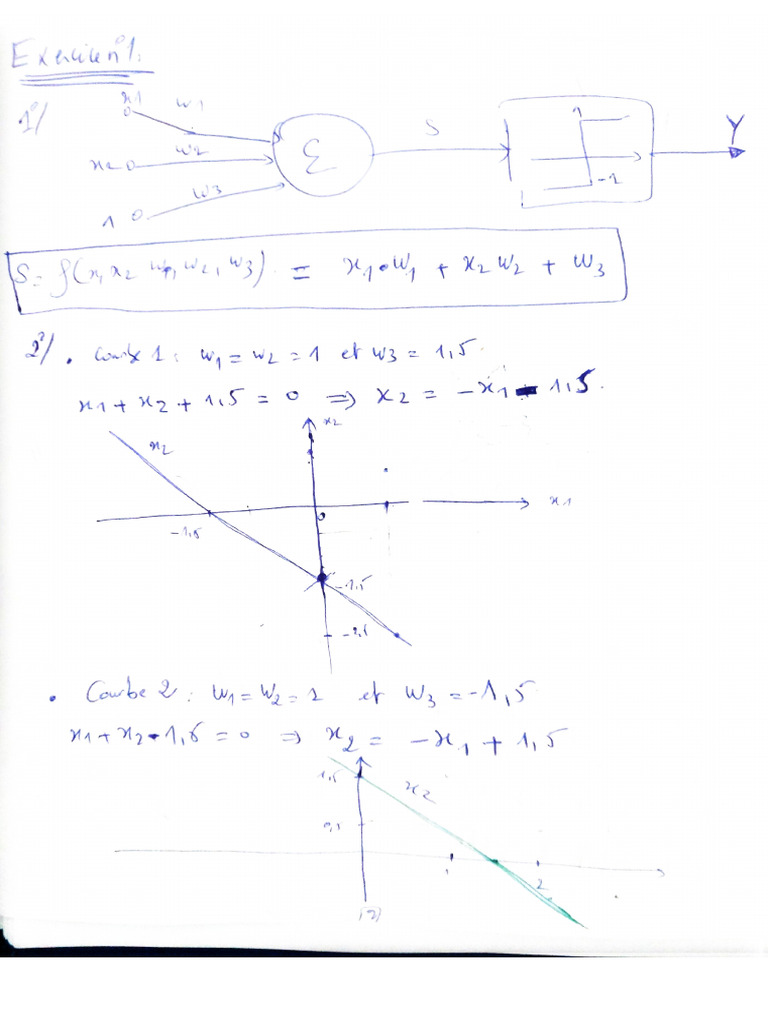 Exercice n°1:
1°/
x1 w1
x2 w2
1 w3
Σ
S
1
-1
Y
S = f(x1 x2 w1, w2, w3) = x1•w1 + x2 w2 + w3
2°/ • Courbe 1 : w1 = w2 = 1 et w3 = 1,5.
x1 + x2 + 1,5 = 0 ⇒ x2 = -x1 - 1,5.
x2
x2
x1
0
-1,5
-1,5
-2,5
• Courbe 2 : w1 = w2 = 1 et w3 = -1,5
x1 + x2 - 1,5 = 0 ⇒ x2 = -x1 + 1,5
1,5
x2
1
2